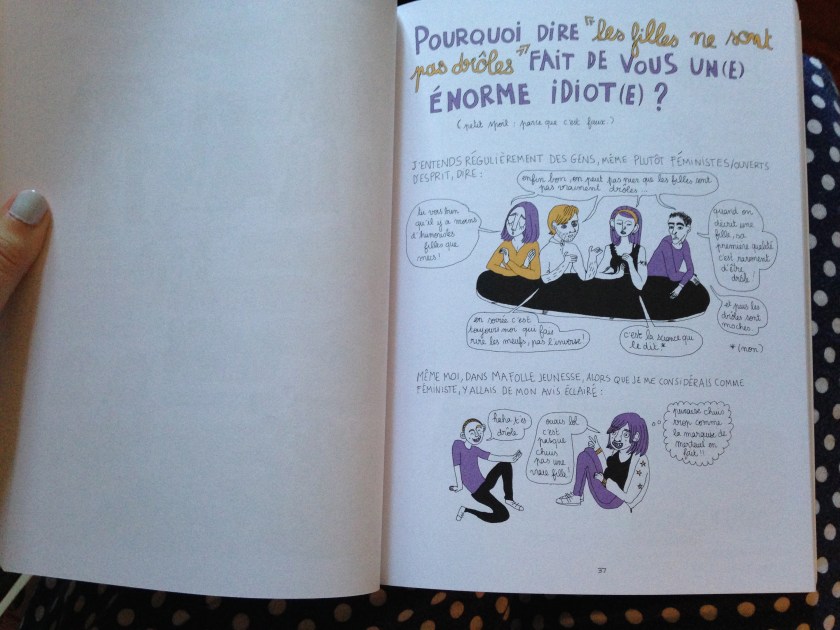 POURQUOI DIRE "les filles ne sont
pas drôles" FAIT DE VOUS UN(E)
ÉNORME IDIOT(E) ?
(petit spoil : parce que c'est faux.)
J'ENTENDS RÉGULIÈREMENT DES GENS, MÊME PLUTÔT FÉMINISTES/OUVERTS
D'ESPRIT, DIRE :
enfin bon, on peut pas nier que les filles sont
pas vraiment drôles...
tu vois bien
qu'il y a moins
d'humoristes
filles que
mecs !
quand on
décrit une
fille, sa
première qualité
c'est rarement
d'être
drôle !
et puis les
drôles sont
moches...
en soirée c'est
toujours moi qui fais
rire les meufs, pas l'inverse !
c'est la science qui
le dit *
* (non)
MÊME MOI, DANS MA FOLLE JEUNESSE, ALORS QUE JE ME CONSIDÉRAIS COMME
FÉMINISTE, Y ALLAIS DE MON AVIS ÉCLAIRÉ :
haha t'es
drôle
ouais lol
c'est
pasque
chuis
pas une
vraie fille !
putain chuis
trop comme
la marquise de
merteuil en
fait !!
37